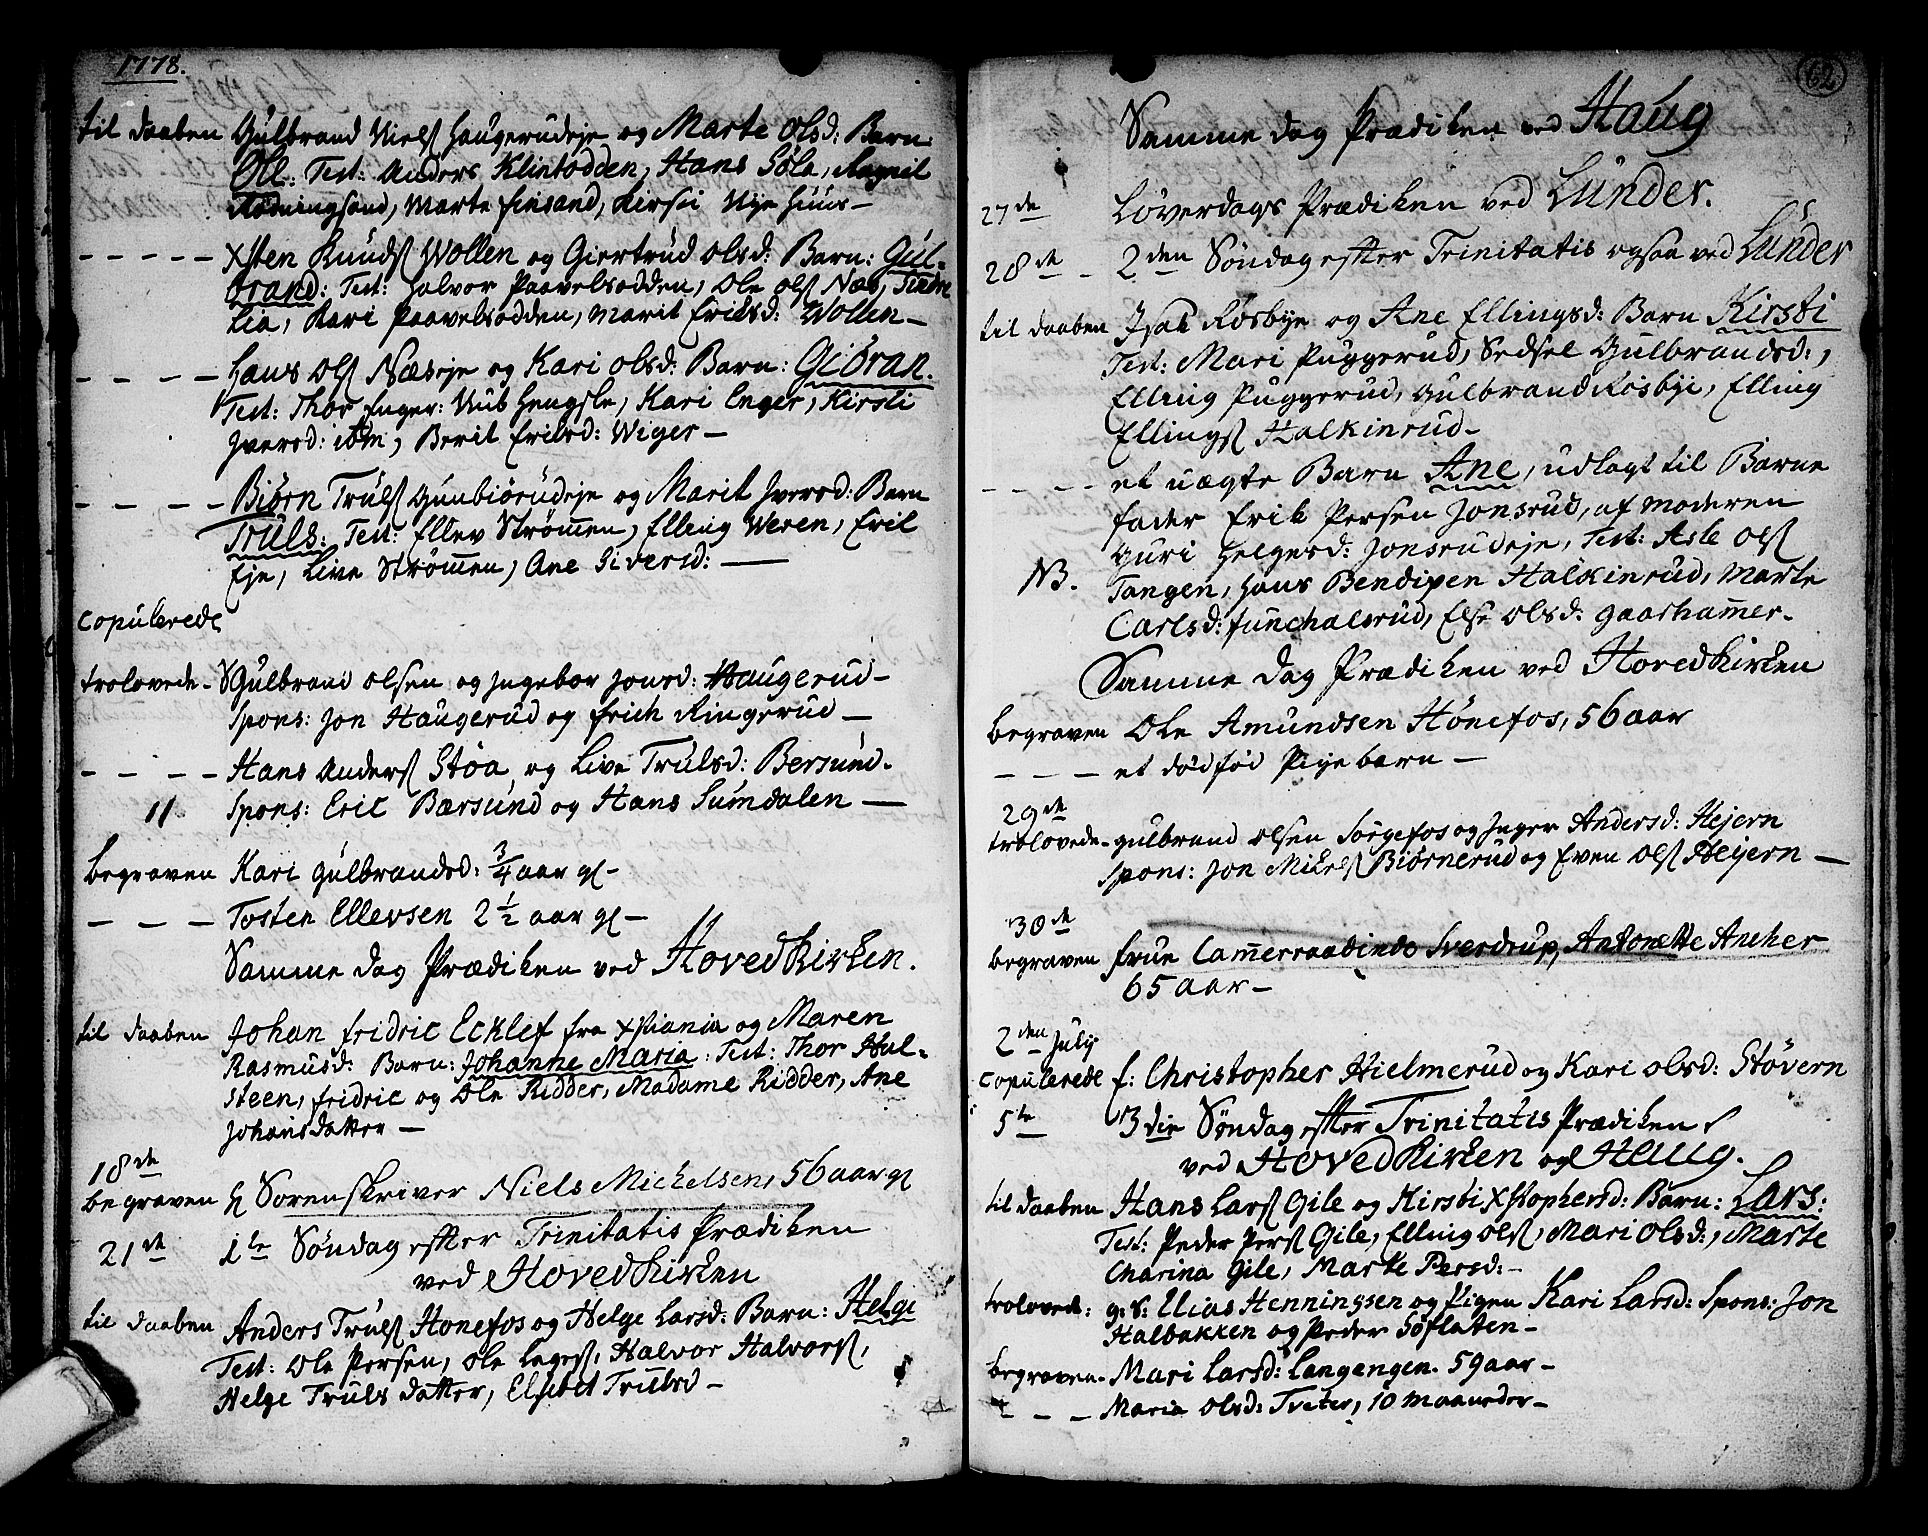 1778.
til daaben Gulbrand Niels Haugerudeje og Marte Olsd: Barn:
Oll: Test: Anders Klintodden, Hans Sola, Ragnil
Rødningsand, Marte finsand, Kirsti Nye Huus -
- - - - - Xsten Knuds Wollen og Giertrud Olsd: Barn: Gul-
brand: Test: Halvor Paavelsodden, Ole Ols Næs,
Lia, Kari Paavelsodden, Marit Eriksd: Wollen -
- - - - Hans Ols Næseje og Kari Olsd: Barn: Gibran.
Test: Thor Enger: Nub Hengsle, Kari Enger, Kirsti
Iversd: ibm, Berit Eriksd: Wiger -
- - - - Biørn Truls Gunbiørudeje og Marit Iversd: Barn
Truls: Test: Ellev Strømmen, Elling Weren, Eril
Eje, Live Strømmen, Ane Siversd: -
Copulerede
trolovede - S Gulbrand Olsen og Ingebor Jonsd: Haugerud -
Spons: Jon Haugerud og Erich Ringerud -
- - - - Hans Anders Støa og Live Trulsd: Bersund.
11 Spons: Eric Bærsund og Hans Sumdalen -
begraven Kari Gulbrandsd: 3/4 aar gl -
- - - Tosten Ellevsen 2 1/2 aar gl -
Samme dag Prædiken ved Hovedkirken.
til daaben Johan fridric Ecklef fra Xstiania og Maren
Rasmusd: Barn: Johanne Maria: Test: Thor Hul-
steen, fridric og Ole Ridder, Madame Ridder, Ane
Johansdatter -
18de
begraven H Sorenskriver Niels Michelsen, 56 aar gl
21de 1te Søndag efter Trinitatis Prædiken
ved Hovedkirken
til daaben Anders Truls Honefos og Helge Larsd: Barn: Helge
Test: Ole Persen, Ole Leges, Halvor Halvors,
Helge Truls datter, Elsebet Trulsd -
62
Samme dag Prædiken ved Haug
27de Løverdags Prædiken ved Lunder.
28de - 2den Søndag efter Trinitatis ogsaa ved Lunder
til daaben Isak Røsbye og Ane Ellingsd: Barn Kirsti
Test: Mari Puggerud, Sedsel Gulbrandsd:,
Elling Puggerud, Gulbrand Røsbye, Elling
Ellings Halkinrud -
- - - - et uægte Barn Ane, udlagt til Barne
fader Erik Persen Jonsrud, af moderen
Guri Helgesd: Jonsrudeje, Test: Asle Ols
NB. Tangen, Hans Bendixen Halkinrud, Marte
Carlsd: funchalsrud, Else Olsd: Gaarhammer -
Samme Dag Prædiken ved Hovedkirken
begraven Ole Amundsen Hønefos, 56 aar
- - - et dødfød Pigebarn -
29de
trolovede - Gulbrand Olsen Sørgefos og Inger Andersd: Hejern
Spons: Jon Mikels Biørnerud og Even Ols Heyern -
30de
begraven Frue Cammerraadinde Sverdrup, Antonette Ancher
65 aar -
2den July
Copulerede f: Christopher Hielmerud og Kari Olsd: Støvern
5te 3die Søndag efter Trinitatis Prædiken
ved Hovedkirken og Haug.
til daaben Hans Lars Gile og Kirsti Xstophersd: Barn: Lars:
Test: Peder Pers Gile, Elling Ols, Mari Olsd:, Marte
Charina Gile, Marte Persd: -
trolovede: g: S: Elias Henningssen og Pigen Kari Larsd: Spons: Jon
Halbakken og Peder Søflaten -
begraven - Mari Larsd: Langengen. 59 aar -
- - - Maria Olsd: Tveter, 10 maaneder -